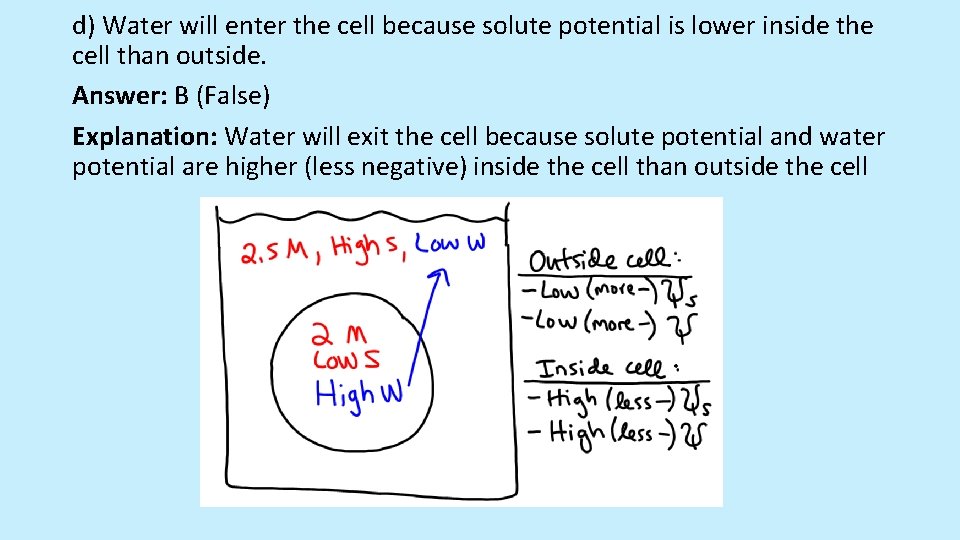 d) Water will enter the cell because solute potential is lower inside the
cell than outside.
Answer: B (False)
Explanation: Water will exit the cell because solute potential and water
potential are higher (less negative) inside the cell than outside the cell
2.5 M, High S, Low W
2 M
Low S
High W
Outside cell:
- Low (more -) Ψs
- Low (more -) Ψ
Inside cell:
- High (less -) Ψs
- High (less -) Ψ